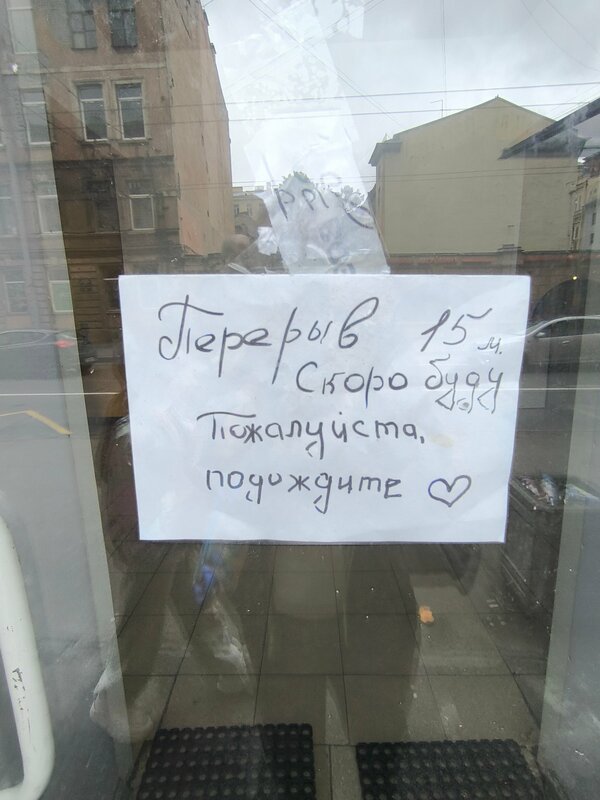 Перерыв 15 м.
Скоро буду
Пожалуйста,
подождите ♡